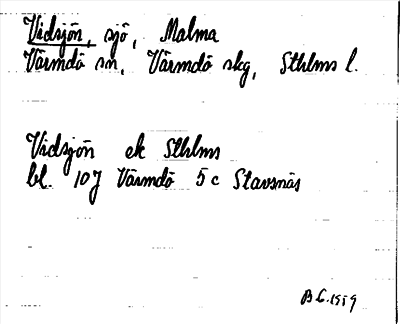 Vidsjön, sjö, Malma
Värmdö sn, Värmdö skg, Sthlms l.
Vidsjön ek Sthlms
bl. 10J Värmdö 5c Stavsnäs
B.G. 1959